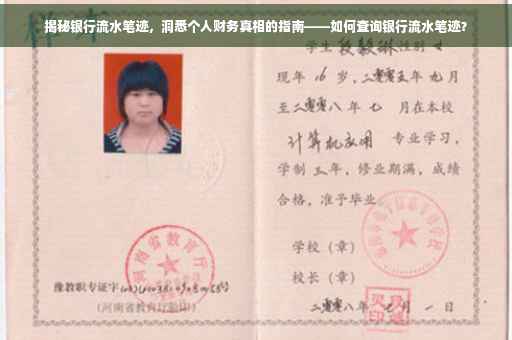 揭秘银行流水笔迹，洞悉个人财务真相的指南——如何查询银行流水笔迹?
学生 段毅琳 性别 女
现年 16 岁，二零零五年 九 月
至二零零八年 七 月在本校
计算机应用 专业学习，
学制 三 年，修业期满，成绩
合格，准予毕业
学校（章）
校长（章）
豫教职专证字
(河南省教育厅验印)
二零零八年 月 一 日
河南省教育厅